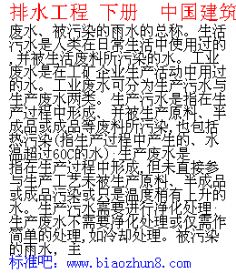 排水工程 下册　中国建筑
废水、被污染的雨水的总称。生活
污水是人类在日常生活中使用过的
,并被生活废料所污染的水。工业
废水是在工矿企业生产活动中用过
的水。工业废水可分为生产污水与
生产废水两类。生产污水是指在生
产过程中形成、并被生产原料、半
成品或成品等废料所污染,也包括
热污染(指生产过程中产生的、水
温超过60C的水);生产废水是
指在生产过程中形成,但未直接参
与生产工艺未被生产原料、半成品
或成品污染或只是温度稍有上升的
水。生产污水需要进行净化处理;
生产废水不需要净化处理或仅需作
简单的处理,如冷却处理。被污染
的雨水,主
标准吧:www.biaozhun8.com